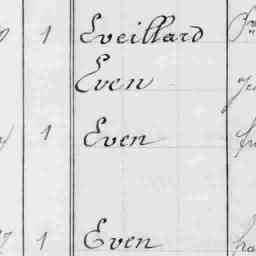 1 Eveillard
Even
1 Even
1 Even